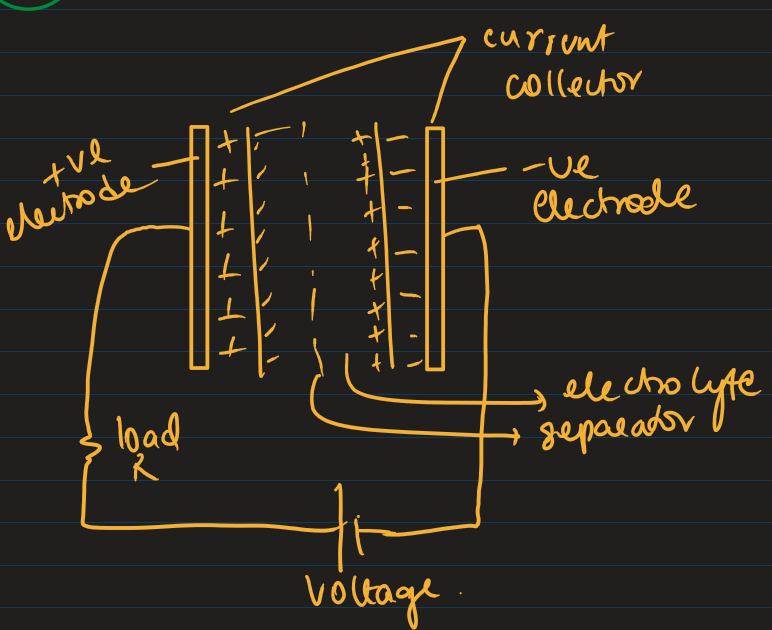 current
collector
+ve
electrode
-ve
electrode
electrolyte
separator
load
R
voltage.